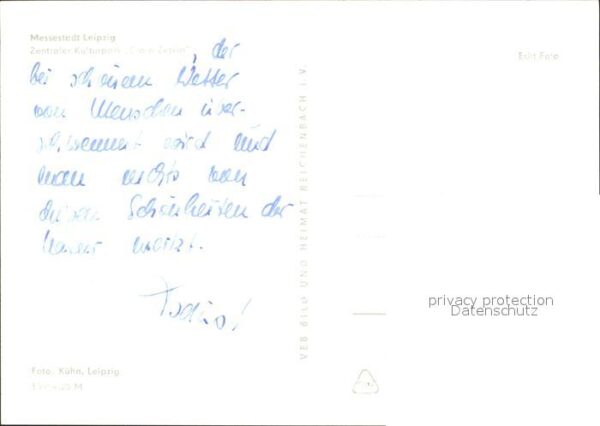 Messestadt Leipzig
Zentraler Kulturpark „Clara Zetkin"
, der
bei schönem Wetter
von Menschen über-
schwemmt wird und
man nichts von
diesen Schönheiten der
Natur merkt.
Echt Foto
VEB BILD UND HEIMAT REICHENBACH I. V.
privacy protection
Datenschutz
Foto, Kühn, Leipzig